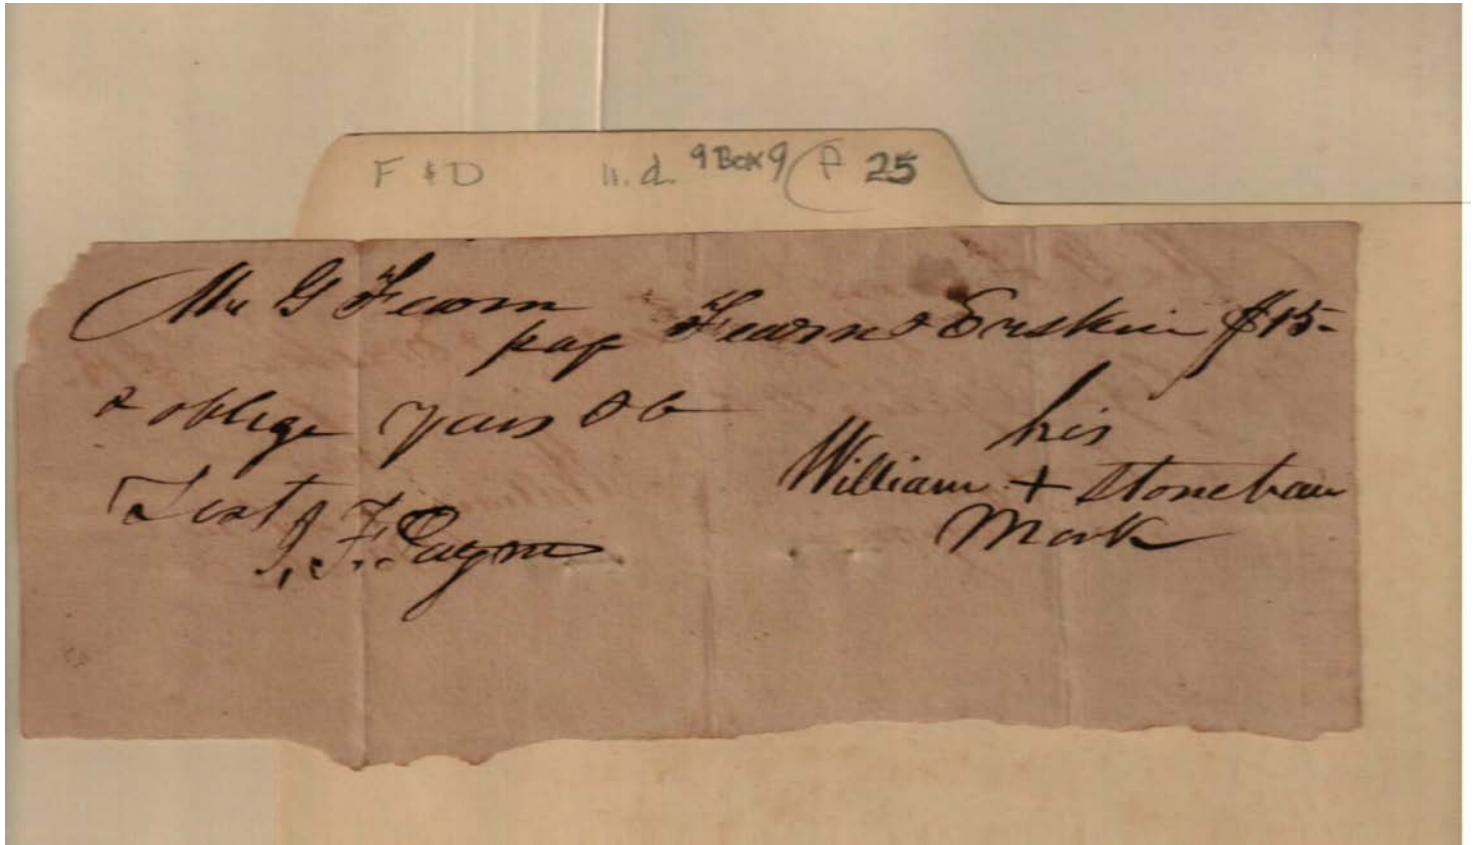 F & D n.d. 9 Box 9 (P 25
Mr G Fearn
pay Fearn & Erskin $15-
& oblige yours &c
his
William + Stoneham
Mark
Test
J. F. Payne